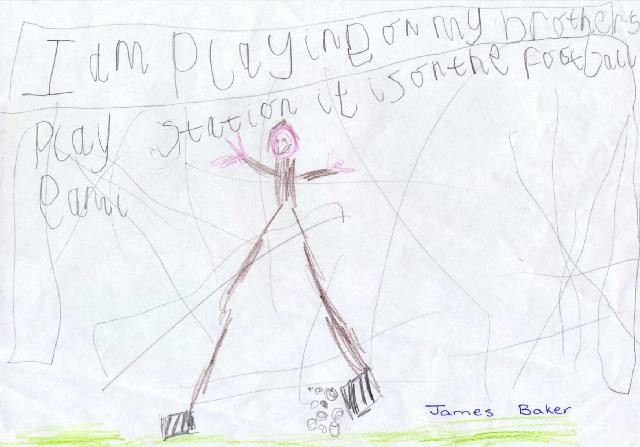 I am playing on my brothers
play station it is on the football
game
James Baker